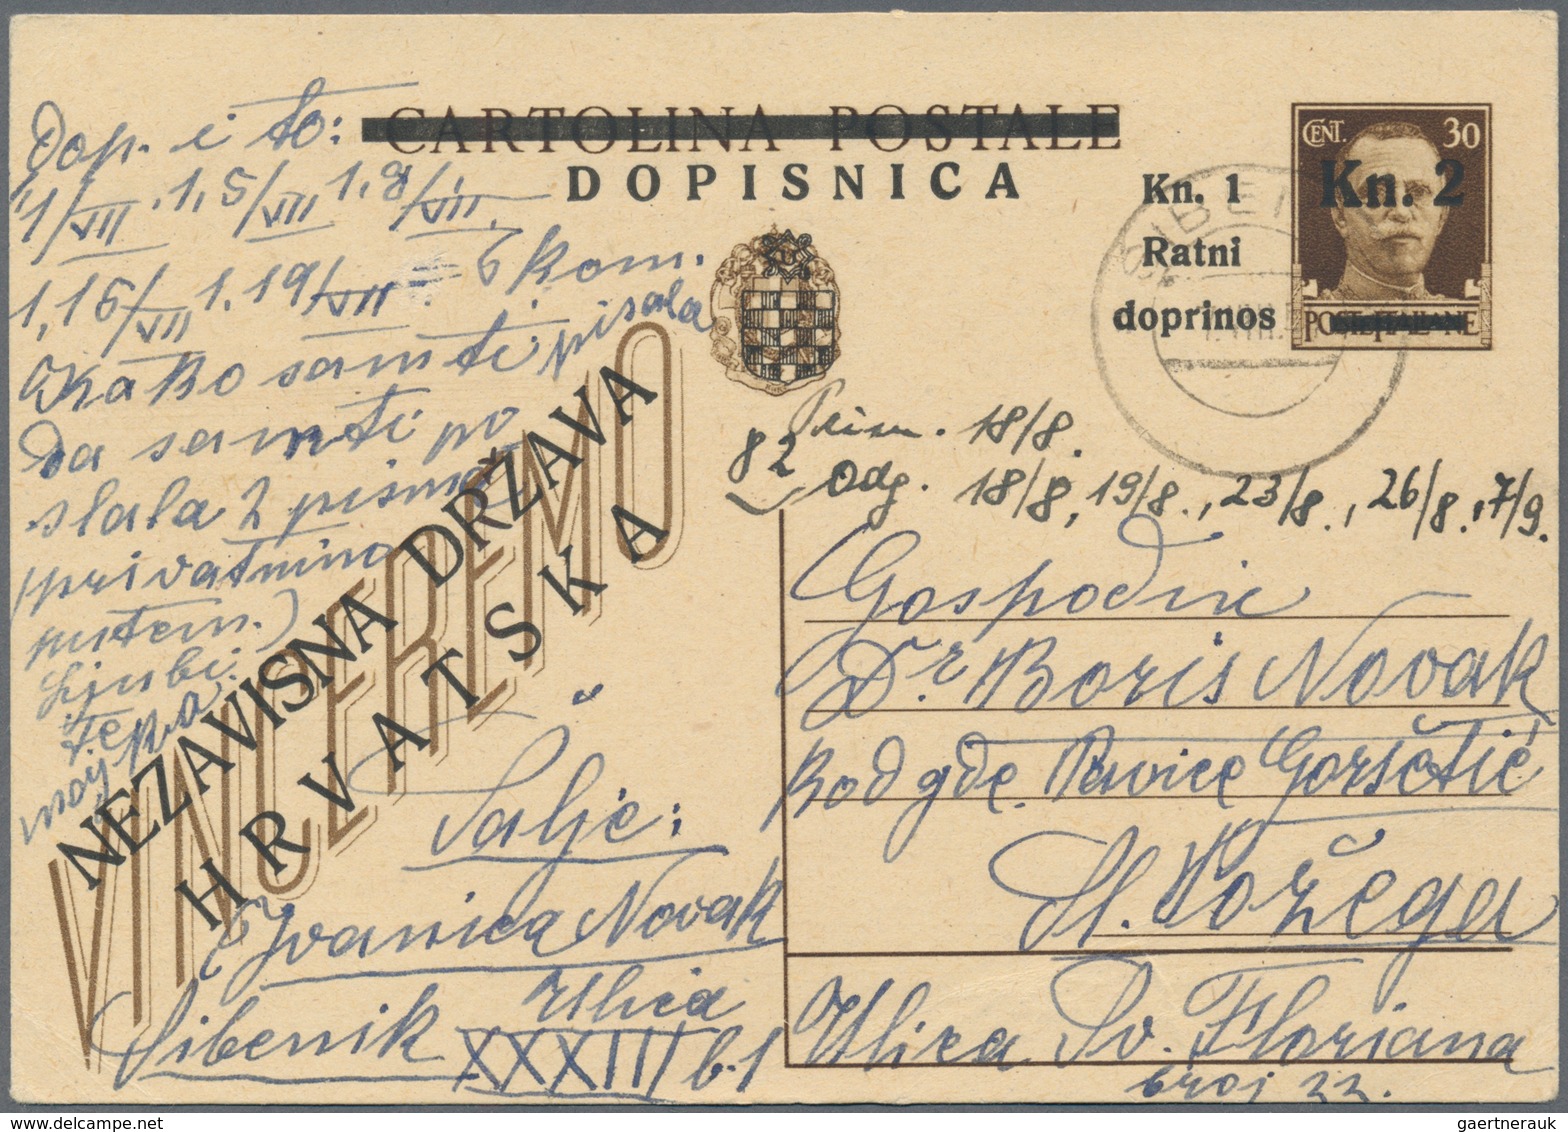 CARTOLINA POSTALE
DOPISNICA
CENT. 30
Kn. 2
Kn. 1
Ratni
doprinos
POSTE ITALIANE
ŠIBENI
VIII.
NEZAVISNA DRŽAVA
HRVATSKA
VINCEREMO
Dop. i to:
1/VII. 1,5/VII 1,8/VII.
1,15/VII 1.19/VII = 6 kom.
Kako sam ti pisala
Da sam ti po
slala 2 pisma
privatnim
putem.)
Ljubi
Te
moj
82
Prim. 18/8.
Odg. 18/8, 19/8., 23/8., 26/8., 7/9.
Gospodin
Dr Boris Novak
kod gđe. Pavice Gorščtić
Sl. Požega
Ulica Sv. Floriana
broj 22.
Šalje:
Ivanica Novak
Šibenik Ulica
XXXIII b.1
gaertnerauk // delcampe.net